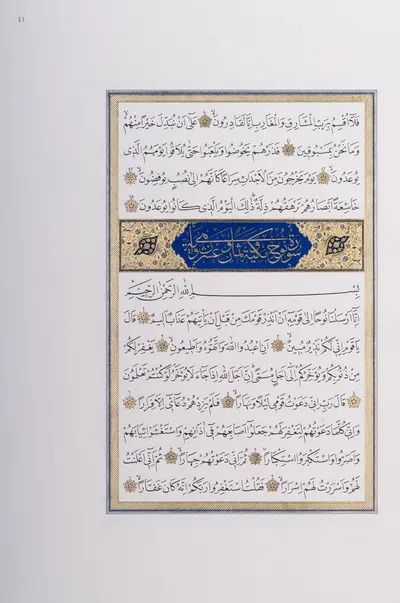 ٤١
فَلَا اُقْسِمُ بِرَبِّ الْمَشَارِقِ وَالْمَغَارِبِ اِنَّا لَقَادِرُونَ عَلٰٓى اَنْ نُبَدِّلَ خَيْرًا مِنْهُمْ
وَمَا نَحْنُ بِمَسْبُوقِينَ فَذَرْهُمْ يَخُوضُوا وَيَلْعَبُوا حَتّٰى يُلَاقُوا يَوْمَهُمُ الَّذِى
يُوعَدُونَ يَوْمَ يَخْرُجُونَ مِنَ الْاَجْدَاثِ سِرَاعًا كَاَنَّهُمْ اِلٰى نُصُبٍ يُوفِضُونَ
خَاشِعَةً اَبْصَارُهُمْ تَرْهَقُهُمْ ذِلَّةٌ ذٰلِكَ الْيَوْمُ الَّذِى كَانُوا يُوعَدُونَ
سورة نوح مكية وهى ثمان وعشرون اية
بِسْمِ اللهِ الرَّحْمٰنِ الرَّحِيمِ
اِنَّا اَرْسَلْنَا نُوحًا اِلٰى قَوْمِهٖ اَنْ اَنْذِرْ قَوْمَكَ مِنْ قَبْلِ اَنْ يَاْتِيَهُمْ عَذَابٌ اَلِيمٌ قَالَ
يَا قَوْمِ اِنِّى لَكُمْ نَذِيرٌ مُبِينٌ اَنِ اعْبُدُوا اللهَ وَاتَّقُوهُ وَاَطِيعُونِ يَغْفِرْ لَكُمْ
مِنْ ذُنُوبِكُمْ وَيُؤَخِّرْكُمْ اِلٰٓى اَجَلٍ مُسَمًّى اِنَّ اَجَلَ اللهِ اِذَا جَٓاءَ لَا يُؤَخَّرُ لَوْ كُنْتُمْ تَعْلَمُونَ
قَالَ رَبِّ اِنِّى دَعَوْتُ قَوْمِى لَيْلًا وَنَهَارًا فَلَمْ يَزِدْهُمْ دُعَٓائِى اِلَّا فِرَارًا
وَاِنِّى كُلَّمَا دَعَوْتُهُمْ لِتَغْفِرَ لَهُمْ جَعَلُوا اَصَابِعَهُمْ فِى اٰذَانِهِمْ وَاسْتَغْشَوْا ثِيَابَهُمْ
وَاَصَرُّوا وَاسْتَكْبَرُوا اسْتِكْبَارًا ثُمَّ اِنِّى دَعَوْتُهُمْ جِهَارًا ثُمَّ اِنِّى اَعْلَنْتُ
لَهُمْ وَاَسْرَرْتُ لَهُمْ اِسْرَارًا فَقُلْتُ اسْتَغْفِرُوا رَبَّكُمْ اِنَّهُ كَانَ غَفَّارًا